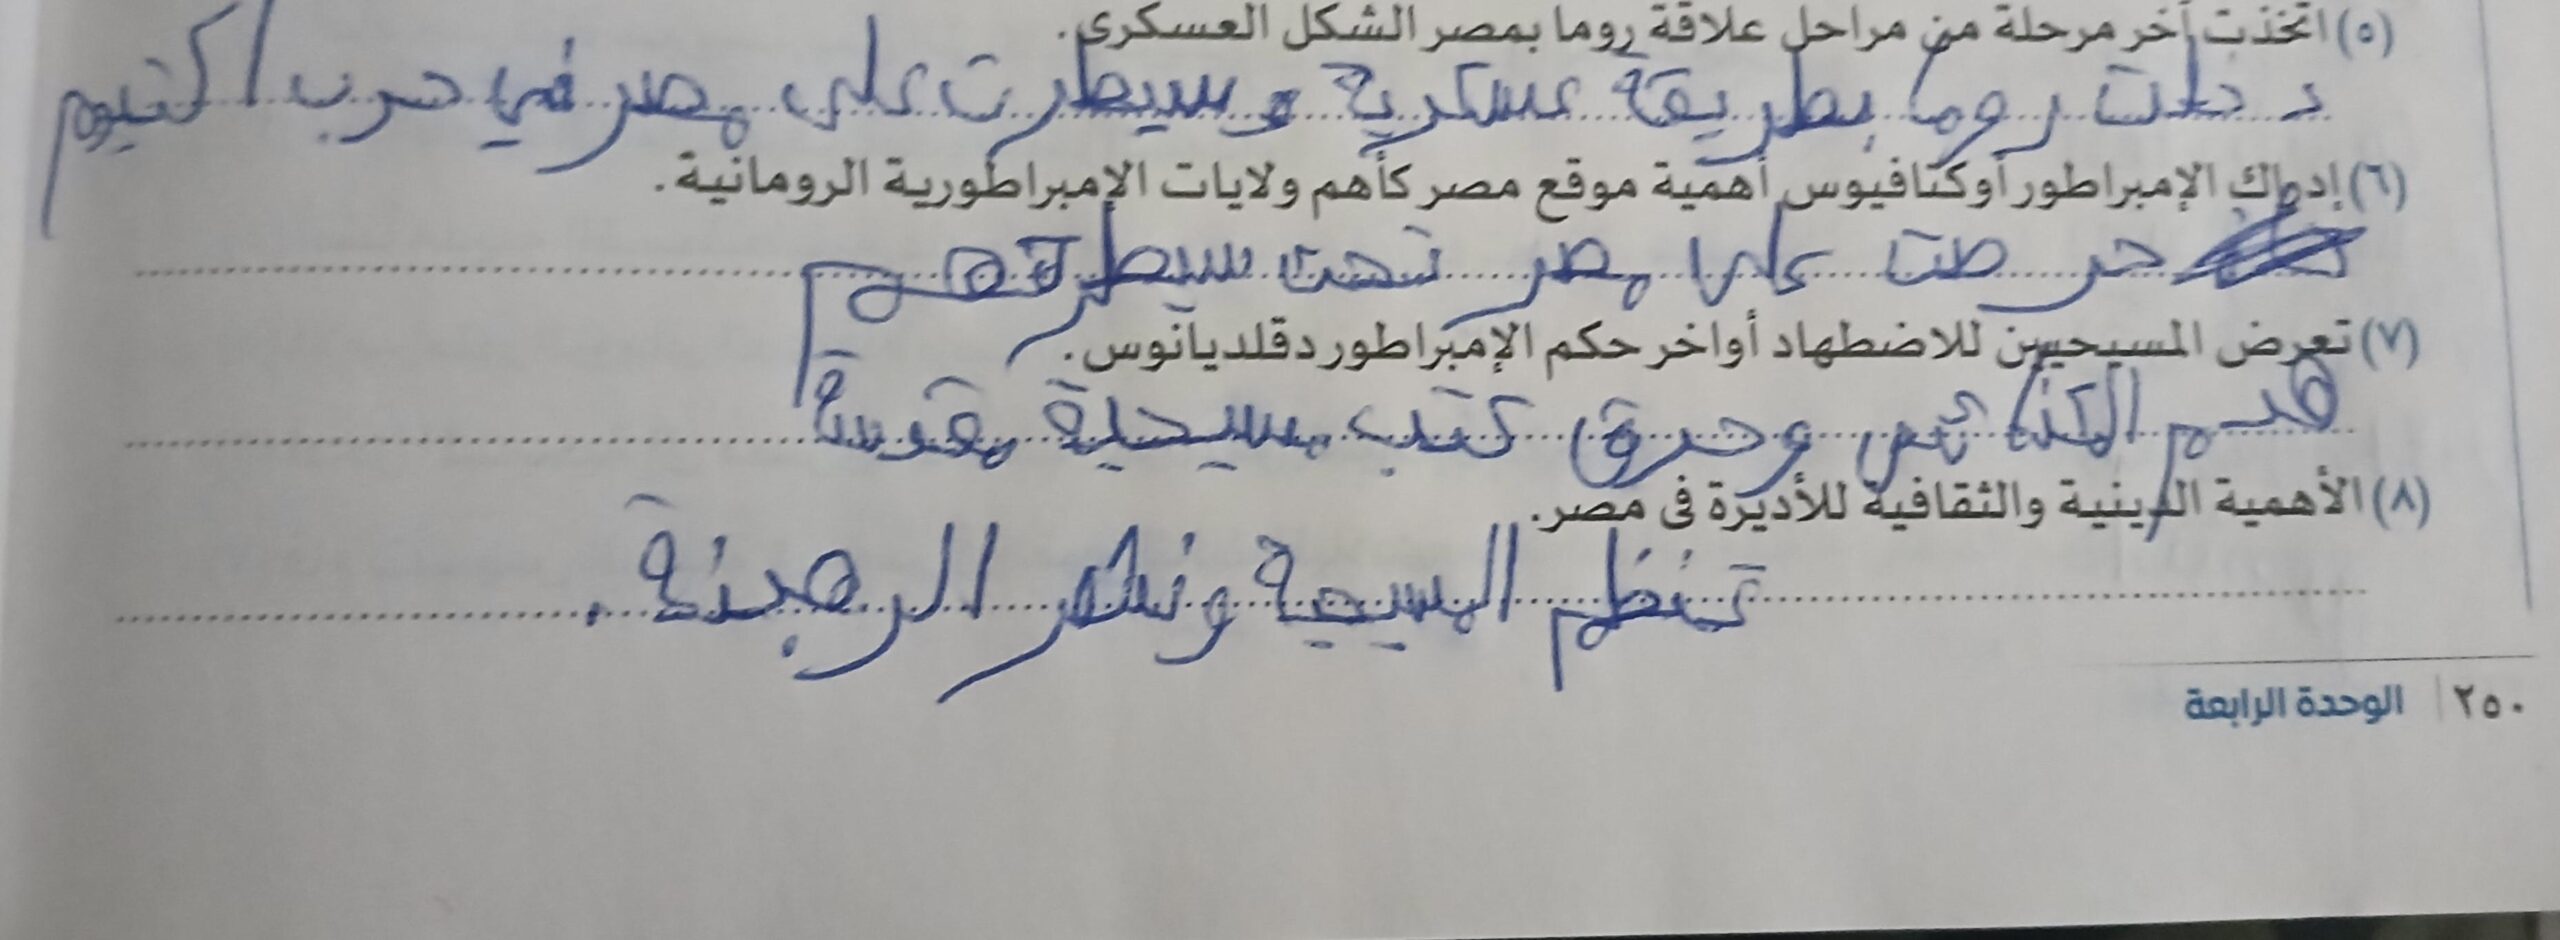 (٥) اتخذت آخر مرحلة من مراحل علاقة روما بمصر الشكل العسكرى.
دخلت روما بطريقة عسكرية و سيطرت على مصر في حرب اكتيوم
(٦) إدراك الإمبراطور أوكتافيوس أهمية موقع مصر كأهم ولايات الإمبراطورية الرومانية.
حرصت على مصر تحت سيطرتهم
(٧) تعرض المسيحيين للاضطهاد أواخر حكم الإمبراطور دقلديانوس.
هدم الكنائس وحرق كتب مسيحية مقدسة
(٨) الأهمية الدينية والثقافية للأديرة فى مصر.
تنظم المسيحية ونشر الرهبنة.
٢٥٠ | الوحدة الرابعة